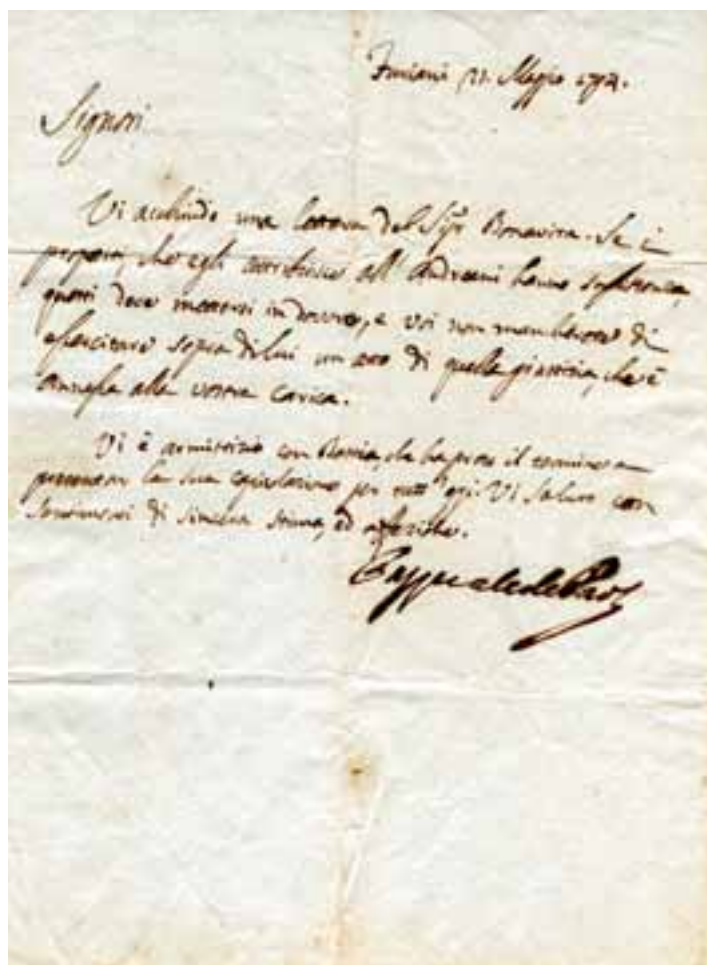 Furiani 21. Maggio 1794.
Signori
Vi acchiudo una lettera del Sigr Bonavita. Se i
propositi, che egli attribuisce all' Andreani hanno sussistenza,
questi deve mettersi in dovere, e voi non mancherete di
esercitare sopra di lui un atto di quella giustizia, che è
annessa alla vostra carica.
Vi è armistizio con Bastia, che ha preso il termine a
la sua capitolazione per tutt' oggi. Vi saluto con
sentimenti di stima, ed
Pasquale de Paoli